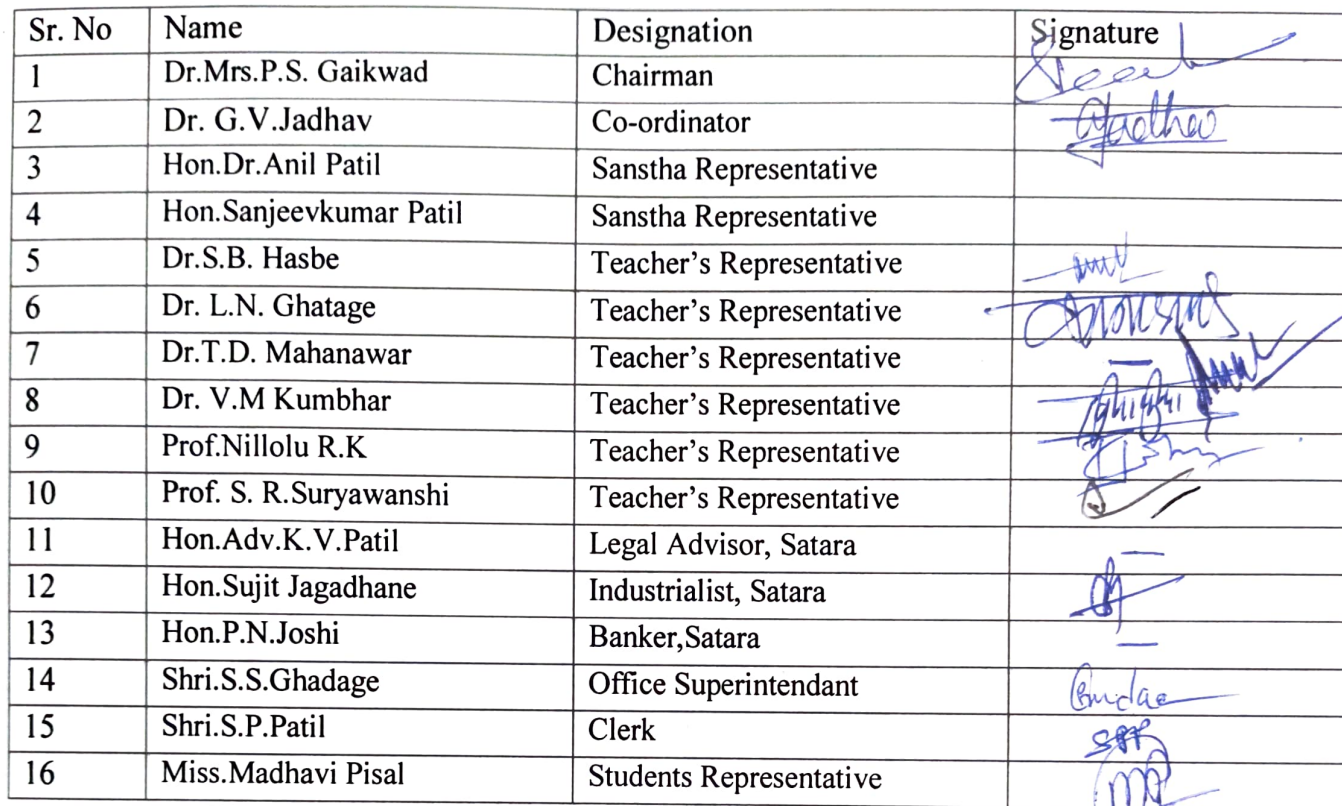 Sr. No Name Designation Signature
1 Dr.Mrs.P.S. Gaikwad Chairman
2 Dr. G.V.Jadhav Co-ordinator
3 Hon.Dr.Anil Patil Sanstha Representative
4 Hon.Sanjeevkumar Patil Sanstha Representative
5 Dr.S.B. Hasbe Teacher's Representative
6 Dr. L.N. Ghatage Teacher's Representative
7 Dr.T.D. Mahanawar Teacher's Representative
8 Dr. V.M Kumbhar Teacher's Representative
9 Prof.Nillolu R.K Teacher's Representative
10 Prof. S. R.Suryawanshi Teacher's Representative
11 Hon.Adv.K.V.Patil Legal Advisor, Satara
12 Hon.Sujit Jagadhane Industrialist, Satara
13 Hon.P.N.Joshi Banker,Satara
14 Shri.S.S.Ghadage Office Superintendant
15 Shri.S.P.Patil Clerk SPP
16 Miss.Madhavi Pisal Students Representative